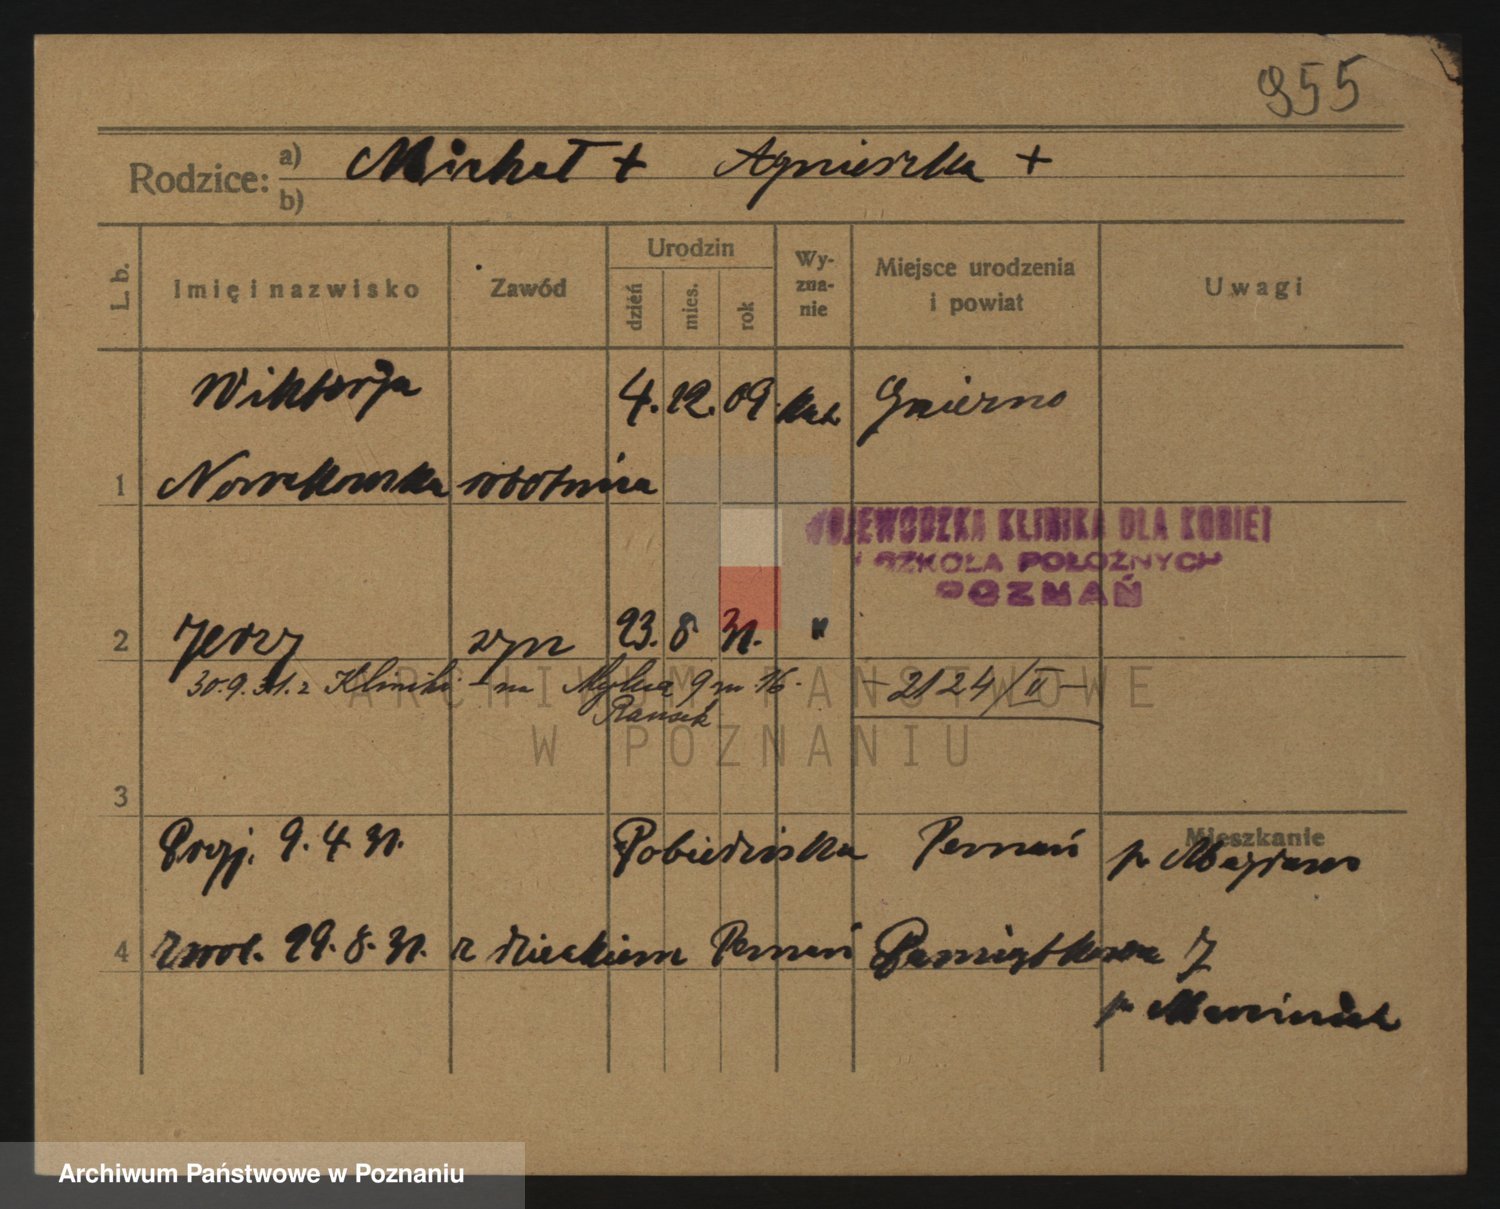 955
Rodzice: a) b) Michał + Agnieszka +
L. b. Imię i nazwisko Zawód Urodzin dzień mies. rok Wy-zna-nie Miejsce urodzenia i powiat Uwagi
Wiktorja 4. 12. 09. kat. Gniezno
1 Nowakowska robotnica
WOJEWÓDZKA KLINIKA DLA KOBIET
I SZKOŁA POŁOŻNYCH
POZNAŃ
2 Jerzy syn 23. 8 31. "
30.9.31. z Kliniki - na 9 m 16. - 2124/II -
ARCHIWUM PAŃSTWOWE
W POZNANIU
3
Mieszkanie
Przj. 9. 4. 31. Pobiedziska Poznań p.
4 zwol. 29. 8. 31. z dzieckiem Poznań Pamiątkowa 7
p. Marciniak
Archiwum Państwowe w Poznaniu